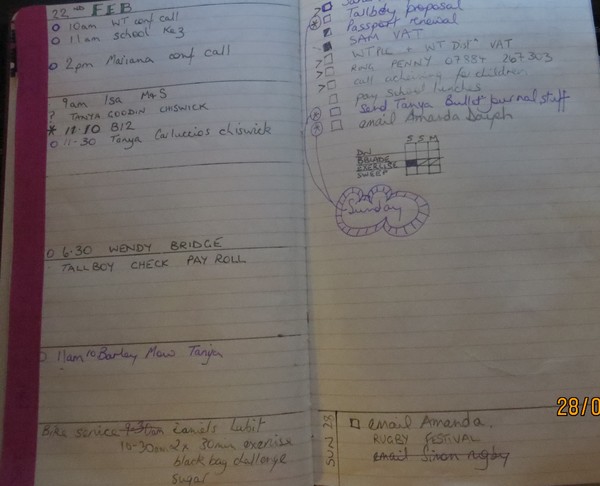 22nd FEB
10am WT conf call
11am school Ks3
2pm Mariana conf call
9am Isa M&S
? TANYA GOODIN CHISWICK
* 11.10 B12
11-30 Tanya Carluccios chiswick
6.30 WENDY BRIDGE
TALLBOY CHECK PAY ROLL
11am Barley Mow Tanya
Bike service 9-30am Daniels Lubit
10-30am 2x 30min exercise
black bag challenge
sugar
Tallboy proposal
Passport renewal
SAM VAT
WTPLC + WT Dist VAT
RING PENNY 07887 267303
call for children
pay school lunches
send Tanya Bullet journal stuff
email Amanda
S S M
EXERCISE
SWEEP
Sunday
28/0
SUN 28
email Amanda.
RUGBY FESTIVAL
email Simon rugby